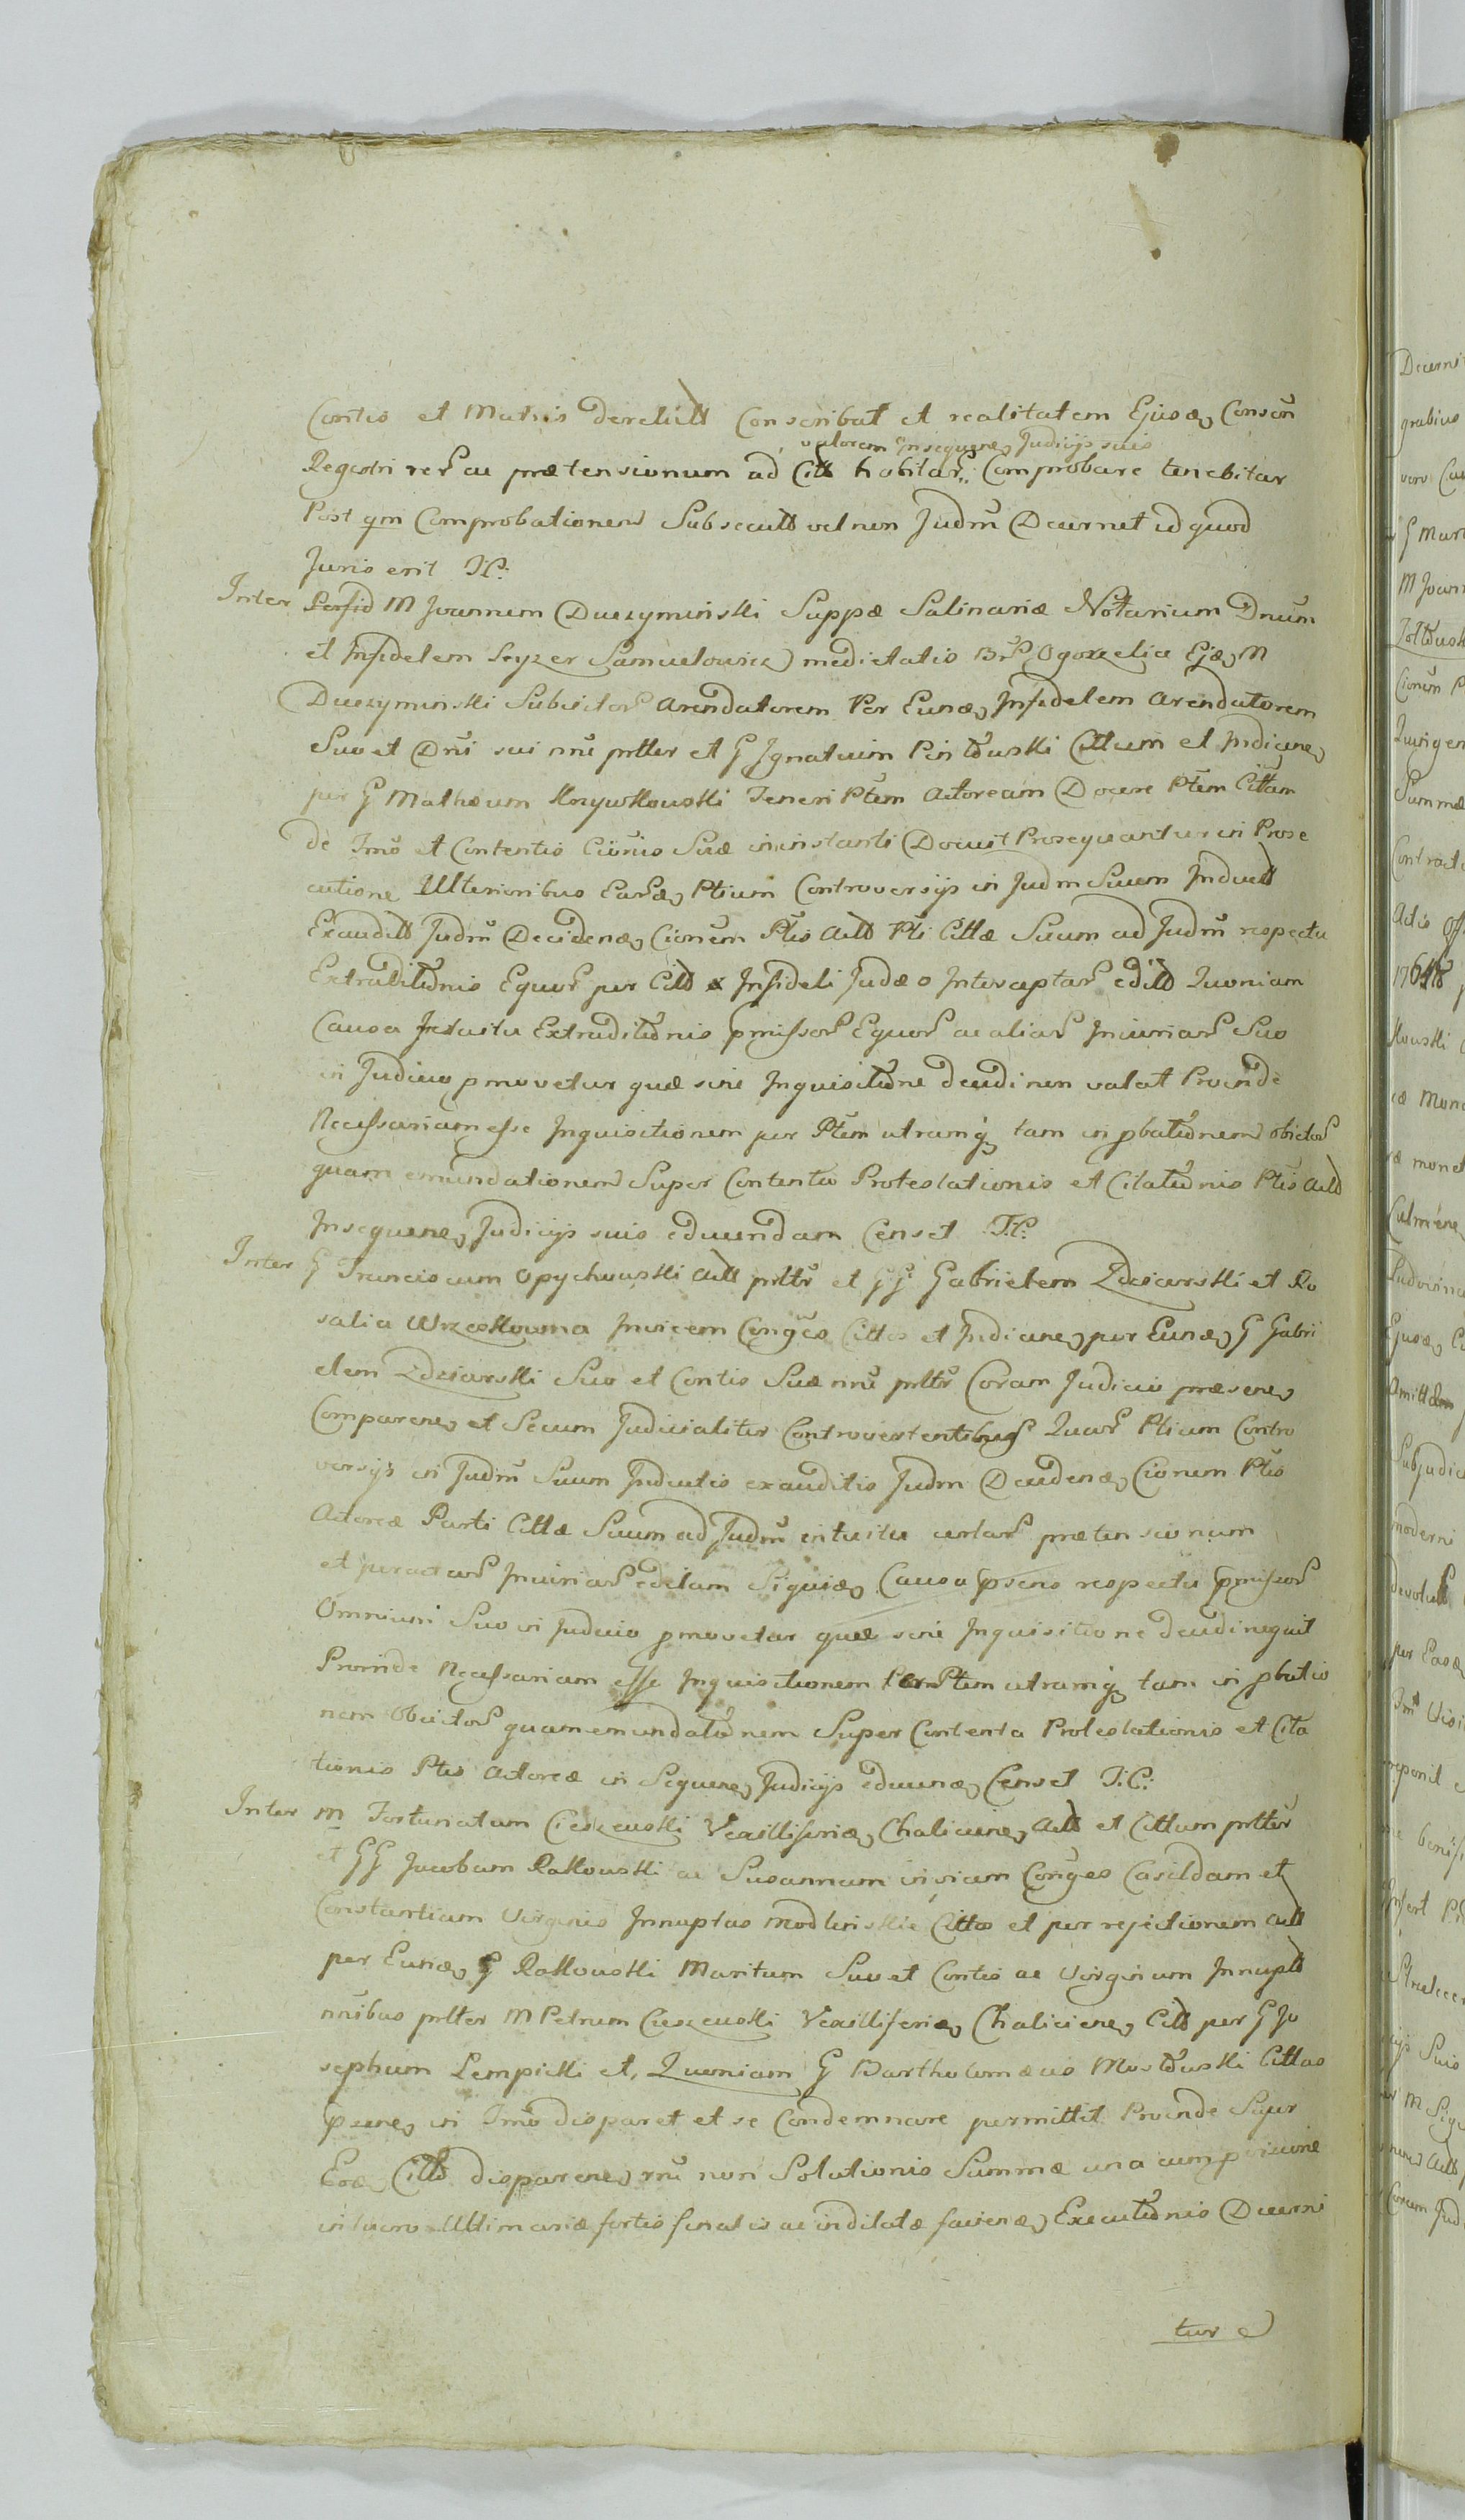 Contis et Matris derelict Conscribat et realitatem Ejusd, Conscri
valorem insequen, Judicijs suis
Regestri rer ac prætensionum ad Citt habitar: Comprobare tenebitur
Post qm Comprobationem Subsecutt vel non Judm Decernet id quod
Juris erit T.C:
Inter Perfid M Joannem Duczyminski Suppæ Salinariæ Notarium Dnum
et Infidelem Leyzer Samuelowicz medietatis Ogorzelice Ejd, M
Duczyminski Subditor Arendatorem Per Eund, Infidelem Arendatorem
Suo et Dni sui nne prtter et G Ignatium Pinłowski Cittum et Indicane,
per G Mathæum Krzywkowski Teneri Ptem Actoream Docere Ptem Cittam
de Tmo et Contentis Cionis Suæ in instanti Docuit Prosequantur in Prose
cutione Ulterioribus Eard, Ptium Controversijs in Judm Suum Induct
Exaudit Judm Decidend, Cionem Ptis Act Pti Cittæ Suum ad Judm respectu
Extraditionis Equor per Citt Infideli Judæo Interceptar edit Quoniam
Causa Intuitu Extraditionis pmissor Equor ac aliar Iniuriar Suo
in Judicio pmovetur quæ sine Inquisitione decidi non valet Proinde
Necessariam esse Inquisitionem per Ptem utramq tam in pbationem obictor
quam emundationem Super Contentu Protestationis et Citationis Ptis Act
Insequene, Judicijs suis educendam Censet T.C:
Inter G Franciscum Opychowski Act prttr et GG Gabrielem Zdziarski et Ro
salia Wrzeskowna Invicem Conges Cittos et Indicane, per Eund, G Gabri
elem Zdziarski Suo et Contis Suæ nne prttr Coram Judicio præsene,
Comparene, et Secum Judicialiter Controvertentibus Quar Ptium Contro
versijs in Judm Suum Inductis exauditis Judm Decidend, Cionem Ptis
Actoreæ Parti Cittæ Suum ad Judm intuitu certar prætensionum
et peractar Iniuriar editam Siquid, Causa psens respectu pmissor
Omnium Suo in Judicio pmovetur quæ sine Inquisitione decidi nequit
Proinde Necessariam esse Inquisitionem Per Ptem utramq tam in pbatio
nem Obictor quam emundationem Super Contenta Protestationis et Cita
tionis Ptis Actoreæ in Sequene, Judicijs educend, Censet T.C:
Inter M Fortunatum Cieszewski Vexilliferid, Chalicien, Act et Cittum prttr
et GG Jacobum Rakowski ac Susannam invicem Conges Casildam et
Constantiam Virgines Innuptas Modlinskie Cittos et per rejectionem Act
per Eund, G Rakowski Maritum Suo et Contis ac Virginum Innupt
nnibus prtter M Petrum Cieszewski Vexilliferid, Chalicien, Citt per G Jo
sephum Lempicki et, Quoniam G Bartholomæus Mostowski Cittus
psene, in Tmo disparet et se Condemnare permittit Proinde Super
Eod, Citt disparene, rne non Solutionis Summæ una cum
in lucro Ultimariæ fortis finalis ac inditatæ faciend, Executionis Decerni
tur e
Decerni
grabius
vero Cau
G Mari
M Joann
Cionem P
Quingen
Summæ
Contract
Actis Off
kowski
cæ Mone
æ monet
Culmene,
Ludovina
Ejusd, C
Amittam
Subjudici
moderni
devolutt
per Easd,
reponit
Suis
M Sigi
Coram Jud